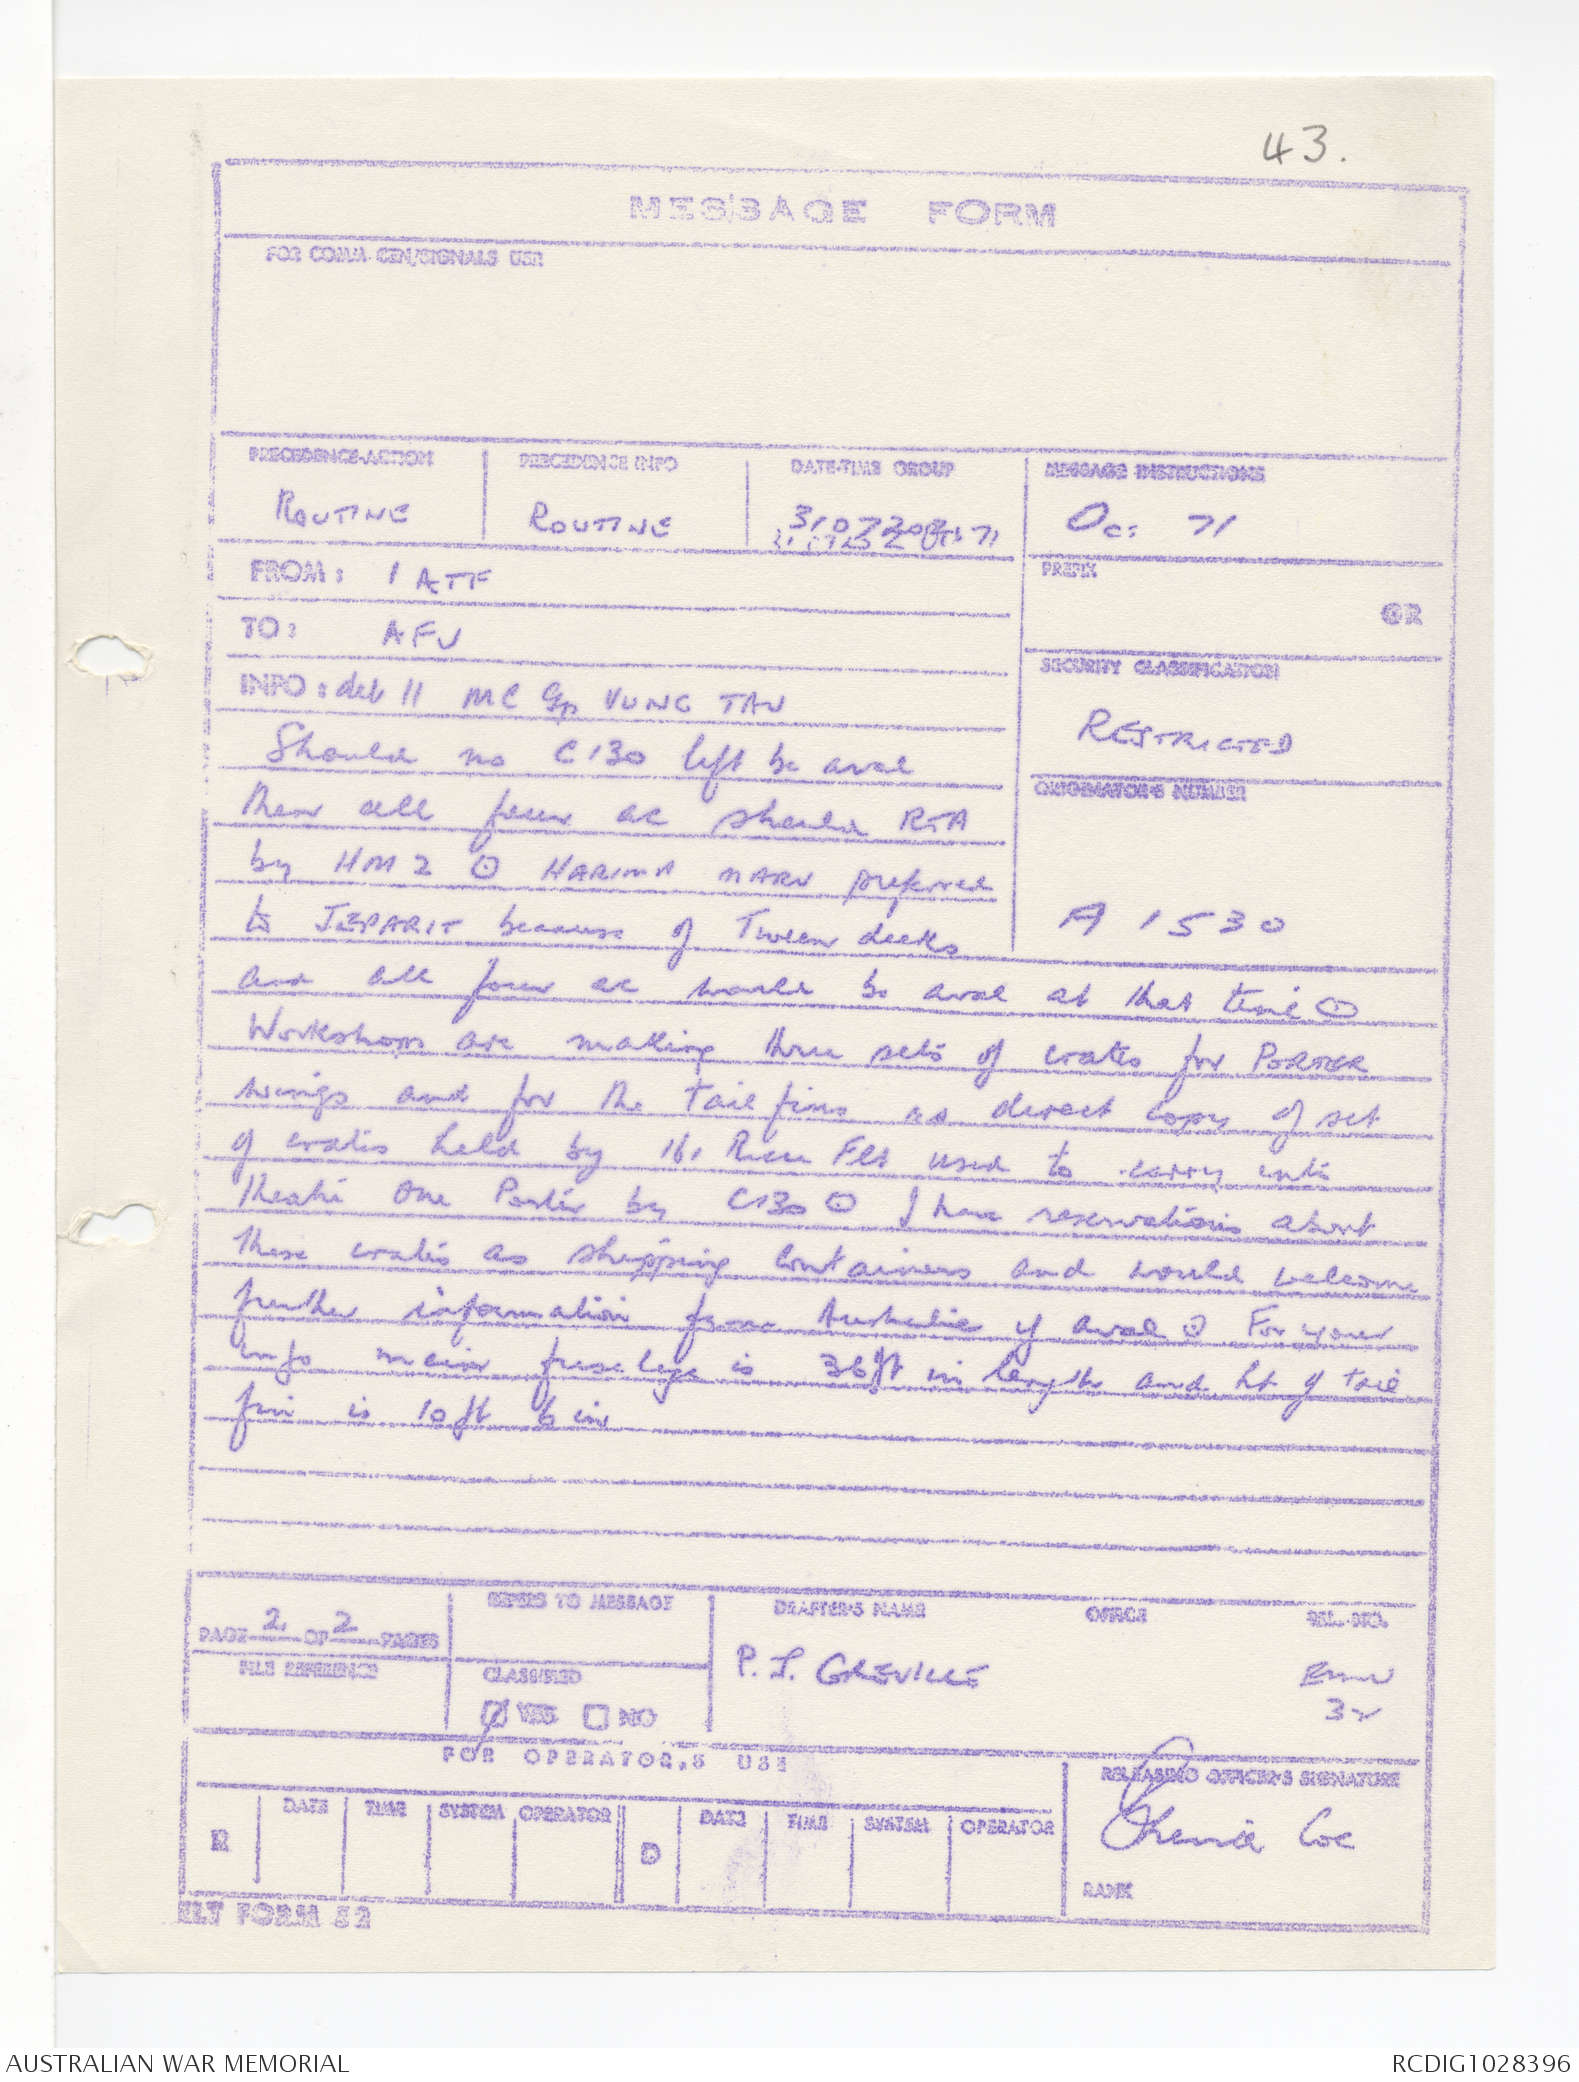 43.
MESSAGE FORM
FOR COMM CEN/SIGNALS USE
PRECEDENCE-ACTION
PRECEDENCE INFO
DATE-TIME GROUP
MESSAGE INSTRUCTIONS
ROUTINE
ROUTINE
71
Oct 71
FROM: 1 ATF
PREFIX
GR
TO: AFV
SECURITY CLASSIFICATION
RESTRICTED
INFO: det 11 MC Gp VUNG TAU
Should no C130 lift be aval
ORIGINATOR'S NUMBER
A 1530
then all four ac should RTA
by HM 2 ⊙ HARIMA MARU preferred
to JEPARIT because of Tween decks
and all four ac would be aval at that time ⊙
Workshops are making three sets of crates for PORTER
wings and for the tail fins as direct copy of set
of crates held by 161 Recce Flt used to carry into
theatre one Porter by C130 ⊙ I have reservations about
these crates as shipping containers and would welcome
further information from Australia if aval ⊙ For your
info main fuselage is 36ft in length and ht of tail
fin is 10 ft 6 in
PAGE 2. OF 2 PAGES
REFERS TO MESSAGE
DRAFTER'S NAME
OFFICE
TEL. NO.
P. J. GREVILLE
32
FILE REFERENCE
CLASSIFIED
YES NO
FOR OPERATOR,S USE
RELEASING OFFICER'S SIGNATURE
R DATE TIME SYSTEM OPERATOR D DATE TIME SYSTEM OPERATOR
RANK
ELT FORM 52
AUSTRALIAN WAR MEMORIAL
RCDIG1028396